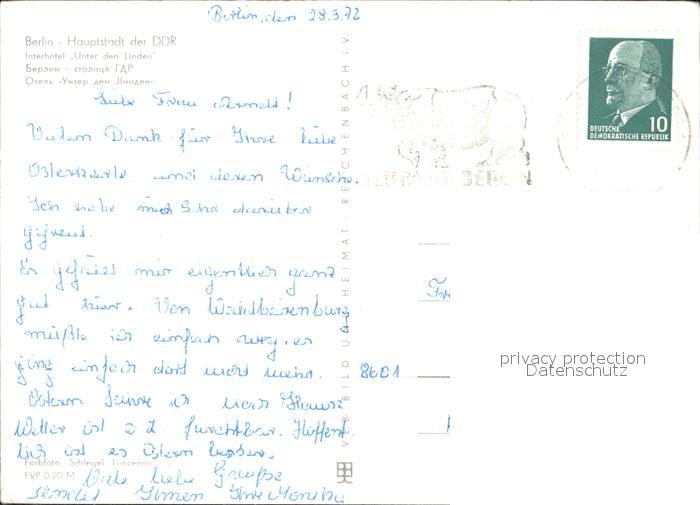 Berlin, den 28.3.72
Berlin - Hauptstadt der DDR
Interhotel „Unter den Linden"
Берлин - столица ГДР
Отель «Унтер ден Линден»
Liebe Frau
Vielen Dank für Ihre liebe
Osterkarte und deren Wünsche.
Ich habe mich sehr darüber
gefreut.
Es gefällt mir eigentlich ganz
gut hier. Von
müßte ich einfach weg, es
ging einfach dort nicht mehr.
Ostern fahre ich nach Hause
Wetter ist z Z. furchtbar. Hoffent-
lich ist es Ostern besser.
Viele liebe Grüße
sendet Ihnen Ihre Monika
Farbfoto: Schlegel, Lunzenau
EVP 0,20 M
VEB BILD UND HEIMAT · REICHENBACH i. V.
BERLIN
10
DEUTSCHE
DEMOKRATISCHE REPUBLIK
Fr
8601
privacy protection
Datenschutz